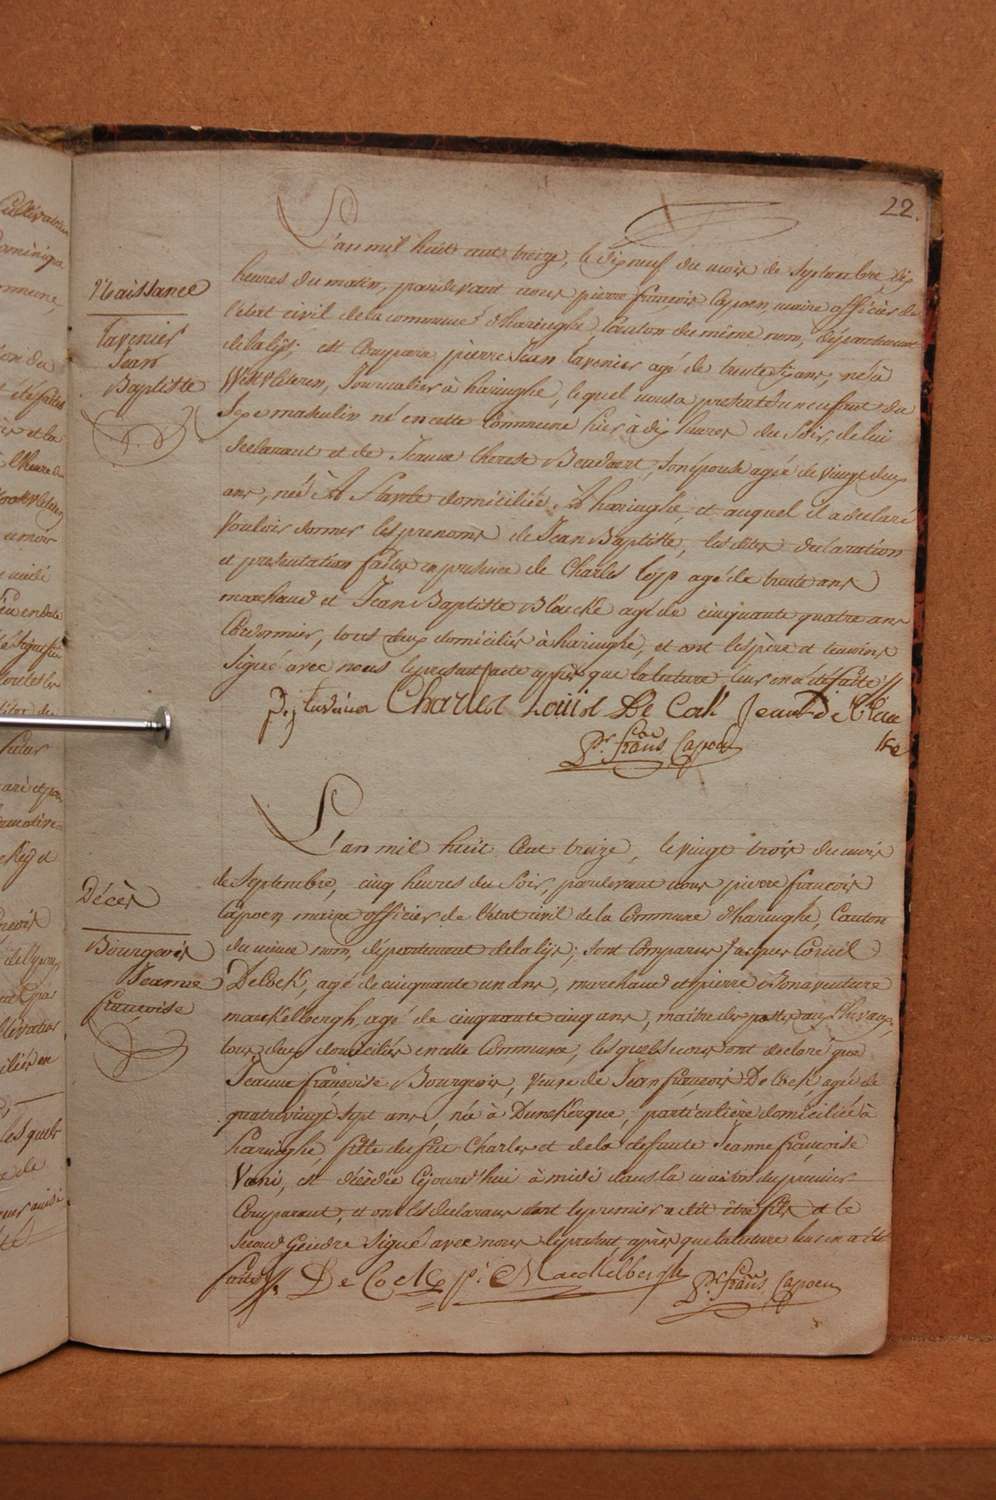 22.
Naissance
Tavenier
Jean
Baptiste
L'an mil huit cent treize, le dix neuf du mois de Septembre, dix
heures du matin, pardevant nous pierre françois Capoen, maire officier de
l'état civil de la commune d'haringhe, Canton du même nom, département
de la lijs; est Comparu pierre Jean Tavenier agé de trente six ans, né à
Westvleteren, Journalier à haringhe, lequel nous a presenté un enfant du
Sexe masculin né en cette Commune hier à dix heures du Soir, de lui
declarant et de Jeanne Therese Beudaert, Son épouse agée de vingt deux
ans, née à Stavele domiciliée à haringhe, et auquel il a declaré
Vouloir donner les prenoms de Jean Baptiste, les dites declaration
et presentation faites en presence de Charles agé de trente ans
marchand et Jean Baptiste Blaucke agé de cinquante quatre ans
Cordonnier, tous deux domiciliés à haringhe, et ont les père et temoins
Signé avec nous le present acte après que lecture leur en a été faite //
p. j Tavenier Charles Louis De Cok Jean De Blau
cke
Pr. frans Capoen
Décès
Bourgeois
Jeanne
françoise
L'an mil huit Cent treize, le vingt trois du mois
de Septembre, cinq heures du Soir, pardevant nous pierre françois
Capoen maire officier de l'état civil de la Commune d'haringhe, Canton
du même nom, département de la lijs; Sont Comparus Jaspar Corneil
De Cock, agé de cinquante un ans, marchand et pierre Bonaventure
maeckelbergh, agé de cinquante cinq ans, maitre des postes aux Chevaux,
tous deux domiciliés en cette Commune, lesquels nous ont declaré que
Jeanne françoise Bourgeois, Veuve de Jean françois De Cock agée de
quatrevingt Sept ans, née à Dunckerque, particulière domiciliée à
haringhe, fille de feu Charles et de la defunte Jeanne françoise
Vani, est décédée Cejourd'hui à midi dans la maison du premier
Comparant, et ont les declarans dont le premier a dit être fils et le
Second Gendre Signé avec nous le present après que lecture leur en a été
faite //. De Cock p: B Maeckelbergh Pr. frans Capoen